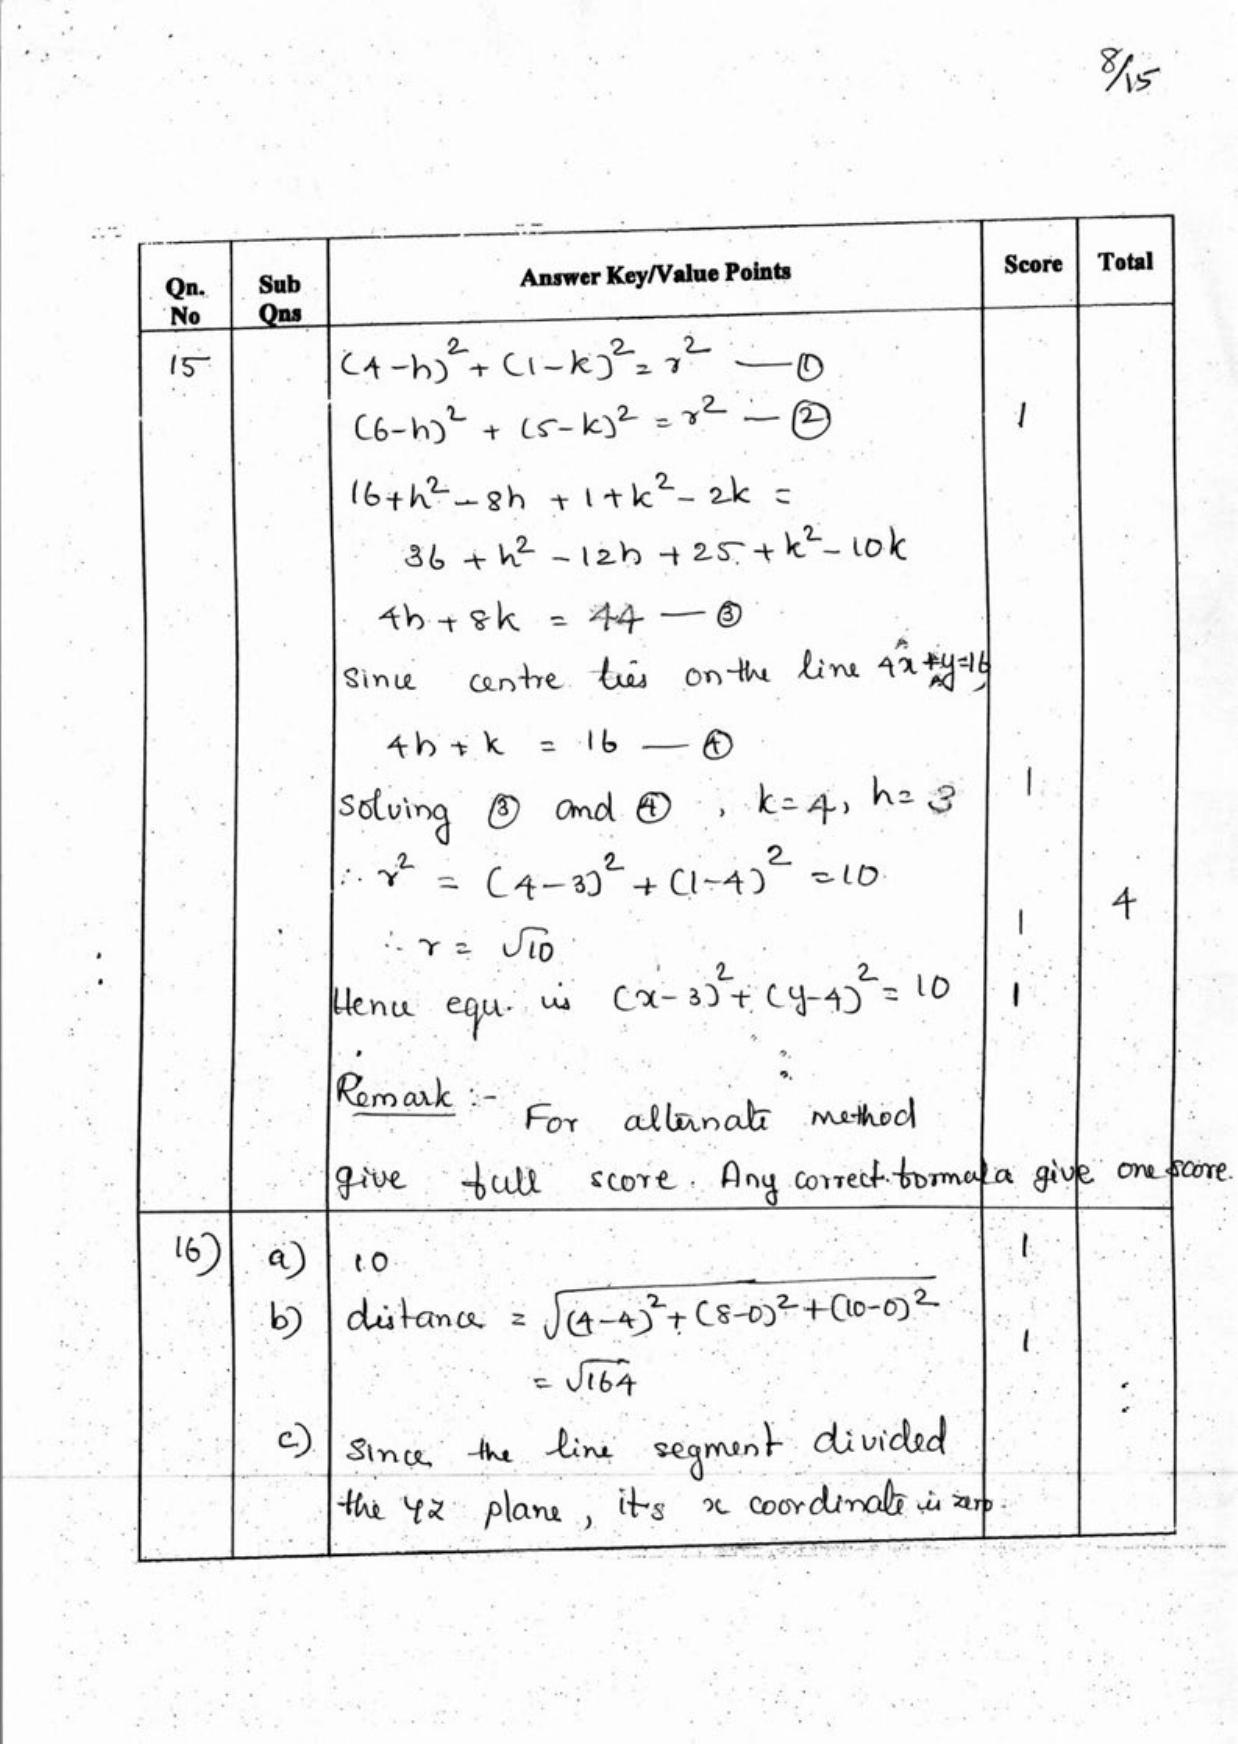 8/15
Qn. No Sub Qns Answer Key/Value Points Score Total
15 (4-h)² + (1-k)² = r² — ①
(6-h)² + (5-k)² = r² — ② 1
16+h²-8h + 1+k²-2k =
36 + h² - 12h + 25 + k² - 10k
4h + 8k = 44 — ③
Since centre lies on the line 4x+y=16,
4h + k = 16 — ④
Solving ③ and ④, k=4, h=3 1
∴ r² = (4-3)² + (1-4)² = 10 4
∴ r = √10 1
Hence equ. is (x-3)² + (y-4)² = 10 1
Remark :- For alternate method
give full score. Any correct formula give one score.
16) a) 10 1
b) distance = √(4-4)² + (8-0)² + (10-0)² 1
= √164
c) Since the line segment divided
the YZ plane, its x coordinate is zero.